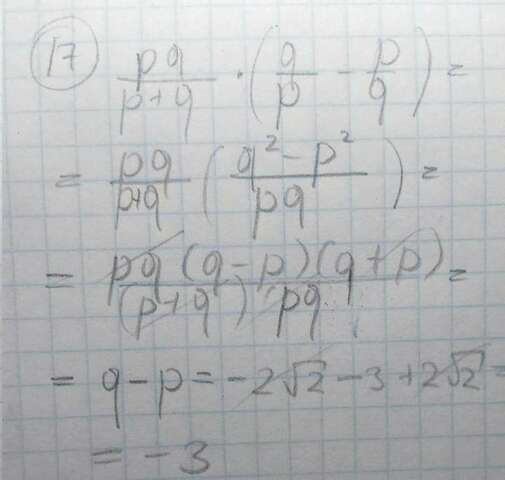 17 pq/(p+q) · (q/p - p/q) =
= pq/(p+q) ((q² - p²)/pq) =
= pq(q-p)(q+p)/((p+q) pq) =
= q-p = -2√2 - 3 + 2√2 =
= -3